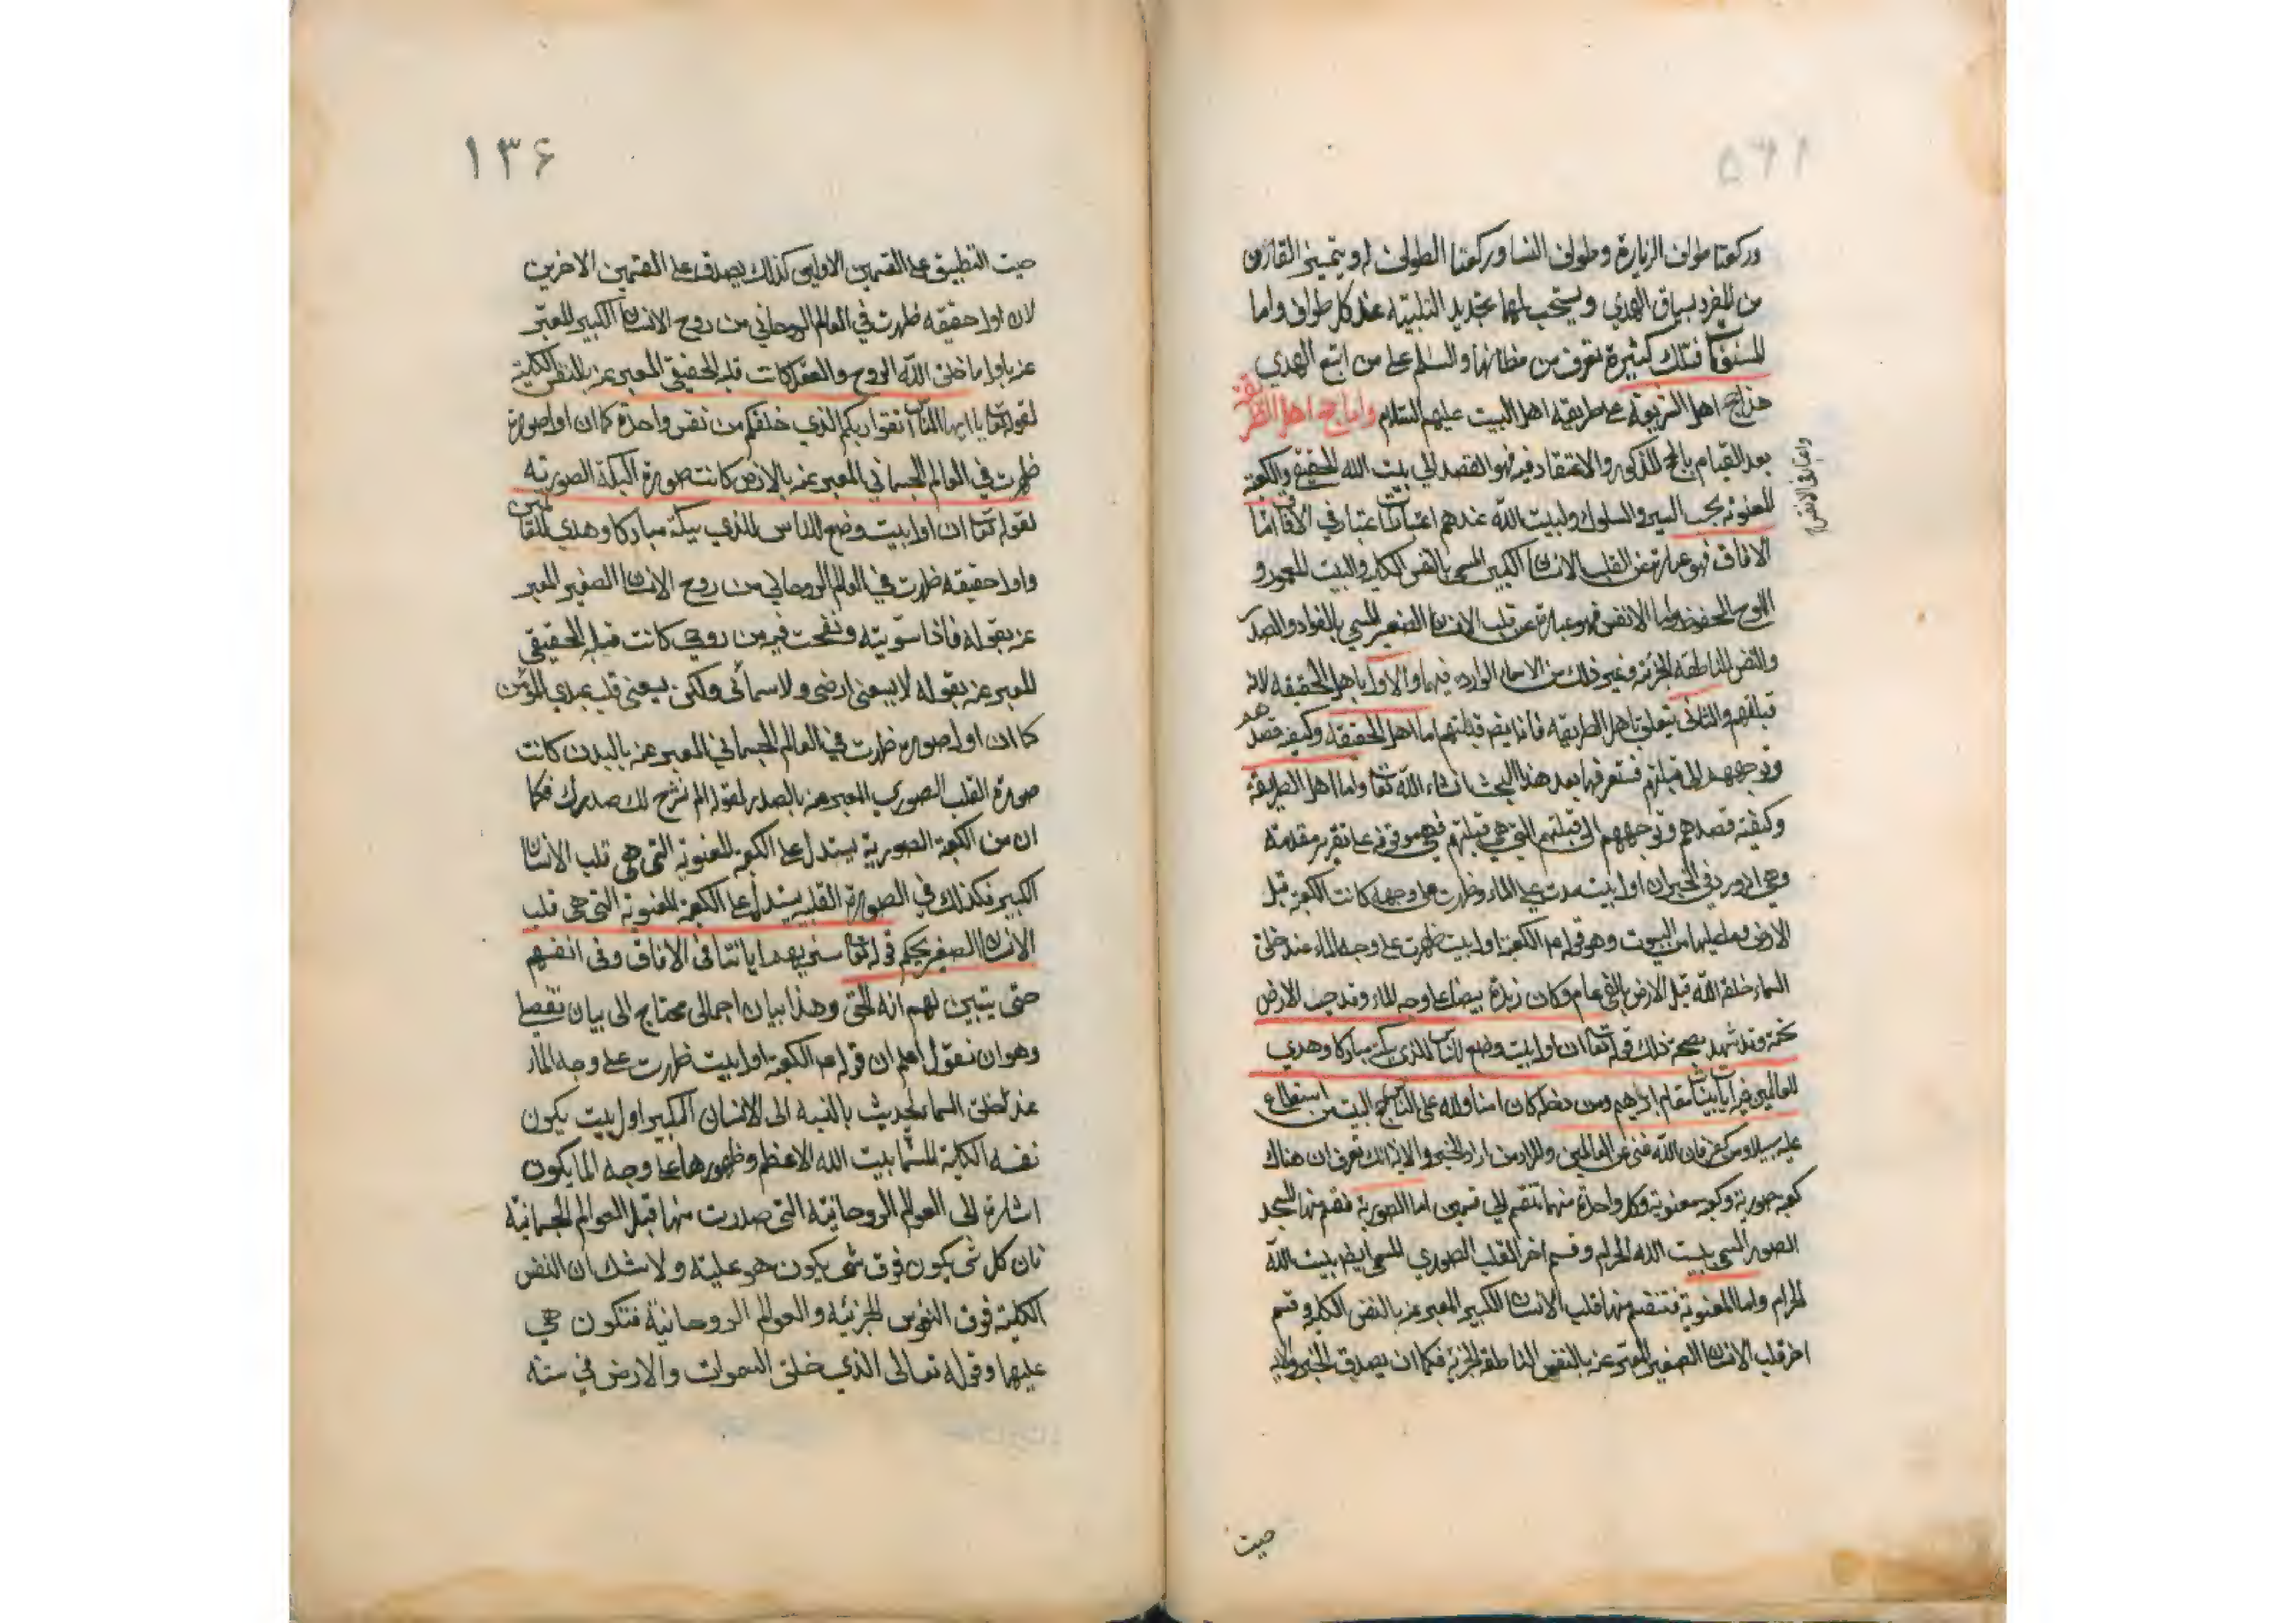 وركعتا طواف الزيارة وطواف النسا وركعتا الطواف له ويتميز القارن
من المفرد بسياق الهدي ويستحب لهما تجديد التلبية عند كل طواف واما
المسنونات فتلك كثيرة تعرف من مظانها والسلم على من اتبع الهدي
هذا حج اهل الشريعة على طريقه اهل البيت عليهم السلام واما حج اهل الطريقة
بعد القيام بالحج المذكور والاعتقاد فيه فهو القصد الي بيت الله الحقيقي والكعبة
المعنوية بحسب السير والسلوك ولبيت الله عندهم اعتبارات اعتبار في الافاق امّا
واعتبار فى الانفس
الافاق فهو عبارة عن القلب الانسان الكبير المسمى بالنفس الكلية والبيت المعمور و
اللوح المحفوظ واما الانفس فهو عبارة عن قلب الانسان الصغير المسمي بالفواد والصدر
والنفس الناطقة الجزئية وغير ذلك من الاسماء الواردة فيهما والاول باهل الحقيقه لانه
قبلتهم والثانى يتعلق باهل الطريقه فانه ايضم قبلتهم اما اهل الحقيقة وكيفية قصدهم
وتوجههم الى قبلتهم فستعرفها بعد هذا البحث انشاء الله تعا واما اهل الطريقة
وكيفية قصدهم وتوجههم الى قبلتهم التي هي قبلتهم فهي موقوفة على تقرير مقدمة
وهي اورد في الخبر ان اول بيت مدت علي الماء وظهرت على وجهه كانت الكعبة قبل
الارض وما عليها من البيوت وهو قوله عم الكعبة اول بيت ظهرت على وجه الماء عند خلق
السماء خلقه الله قبل الارض بالفى عام وكان زبدة بيضاء على وجه الماء فدحيت الارض
تحته وقد شهد بصحة ذلك قوله تعا ان اول بيت وضع للناس للذي ببكة مباركا وهدي
للعالمين فيه ايات بينات مقام ابرهيم ومن دخله كان امنا ولله على الناس حج البيت من استطاع
عليه سبيلا ومن كفر فان الله غني عن العالمين والمراد من ايراد الخبر والاية انك تعرف ان هناك
كعبة صورية وكعبة معنوية وكل واحدة منهما تنقسم الي قسمين اما الصورية فقسم منها المسجد
الصوري المسمى ببيت الله الحرام وقسم اخر القلب الصوري المسمى ايضم ببيت الله
الحرام واما المعنوية فتنقسم منها قلب الانسان الكبير المعبر عنه بالنفس الكلية وقسم
اخر قلب الانسان الصغير المعبّر عنه بالنفس الناطقة الجزئية فكما ان يصدق الخبر والاية
حيث
۱۳۶
حيث التطبيق على القسمين الاولين كذلك يصدق على القسمين الاخرين
لان اول حقيقه ظهرت في العالم الروحاني من روح الانسان الكبير المعبّر
عنه باول ما خلق الله الروح والعقل كانت قلبه الحقيقي المعبر عنه بالنفس الكلية
لقوله تعا يا ايها الناس اتقوا ربكم الذي خلقكم من نفس واحدة كما ان اول صورة
ظهرت في العالم الجسماني المعبر عنه بالارض كانت صورة البكة الصورية
لقوله تعا ان اول بيت وضع للناس للذي ببكة مباركا وهدي للعالمين
واول حقيقه ظهرت في العالم الروحاني من روح الانسان الصغير المعبر
عنه بقوله فاذا سوّيته ونفخت فيه من روحي كانت قبله الحقيقي
المعبر عنه بقوله لا يسعنى ارضى ولا سمائى ولكن يسعنى قلب عبدي المؤمن
كما ان اول صورة ظهرت في العالم الجسماني المعبر عنه بالبدن كانت
صورة القلب الصوري المعبر عنه بالصدر لقوله الم نشرح لك صدرك فكما
ان من الكعبة الصورية يستدل على الكعبة المعنوية التى هي قلب الانسان
الكبير فكذلك في الصورة القلبية يستدل على الكعبة المعنوية التى هي قلب
الانسان الصغير بحكم قوله تعا سنريهم اياتنا فى الافاق وفى انفسهم
حتى يتبين لهم انه الحق وهذا بيان اجمالى محتاج الى بيان تفصيلى
وهو ان نقول اعلم ان قوله عم الكعبة اول بيت ظهرت على وجه الماء
عند خلق السماء الحديث بالنسبة الى الانسان الكبير اول بيت يكون
نفسه الكلية المسمّا ببيت الله الاعظم وظهورها على وجه الما يكون
اشارة الى العوالم الروحانية التى صدرت منها قبل العوالم الجسمانية
فان كل شى يكون فوق شى يكون هو عليته ولا شك ان النفس
الكلية فوق النفوس الجزئيه والعوالم الروحانية فتكون هي
عليها وقوله تعالى الذي خلق السموات والارض في ستة